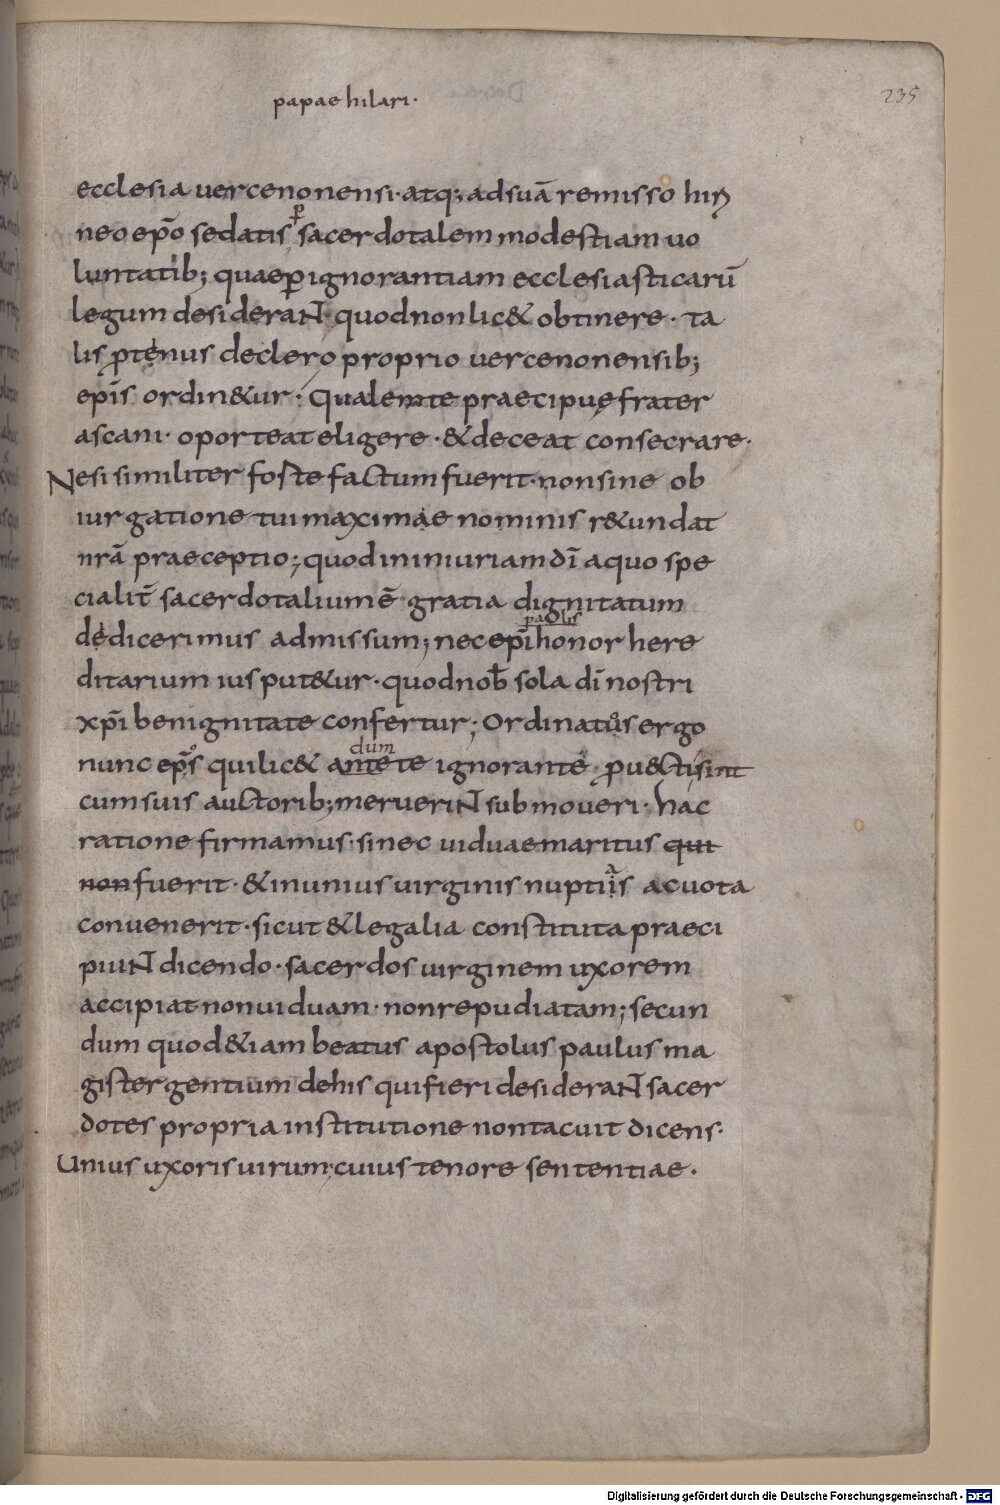 papae hilari·
235
ecclesia uercenonensi· atq; adsuā remisso hiri
neo ep̄o sedatis p̱ sacerdotalem modestiam uo
luntatib; quae ꝑ ignorantiam ecclesiasticarū
legum desiderant· quod non lic& obtinere· ta
lis ꝓtenus declero proprio uercenonensib;
ep̄is ordin&ur· Qualemte praecipuę frater
ascani· oporteat eligere· & deceat consecrare·
Nesi similiter foste factum fuerit· non sine ob
iurgatione tui maximae nominis r&undat
nr̄ā praeceptio; quod in iniuriam dī a quo spe
cialit̄ sacerdotalium ē gratia dignitatum
dedicerimus admissum; nec ep̄i paolis honor here
ditarium ius put&ur· quod nob̄ sola dī nostri
xp̄i benignitate confertur; Ordinatus ergo
nunc ep̄os quilic& antete dum ignorante ꝓu&ctisint
cum suis auctorib; meruerint submoueri· hac
ratione firmamus· sinec uiduae maritus qui
non fuerit· & in unius uirginis nuptiis a acuota
conuenerit· sicut & legalia constituta praeci
piunt dicendo· sacerdos uirginem uxorem
accipiat non uiduam· non repudiatam; secun
dum quod &iam beatus apostolus paulus ma
gister gentium dehis qui fieri desiderant sacer
dotes propria institutione non tacuit dicens·
Unius uxoris uirum; cuius tenore sententiae·
Digitalisierung gefördert durch die Deutsche Forschungsgemeinschaft - DFG